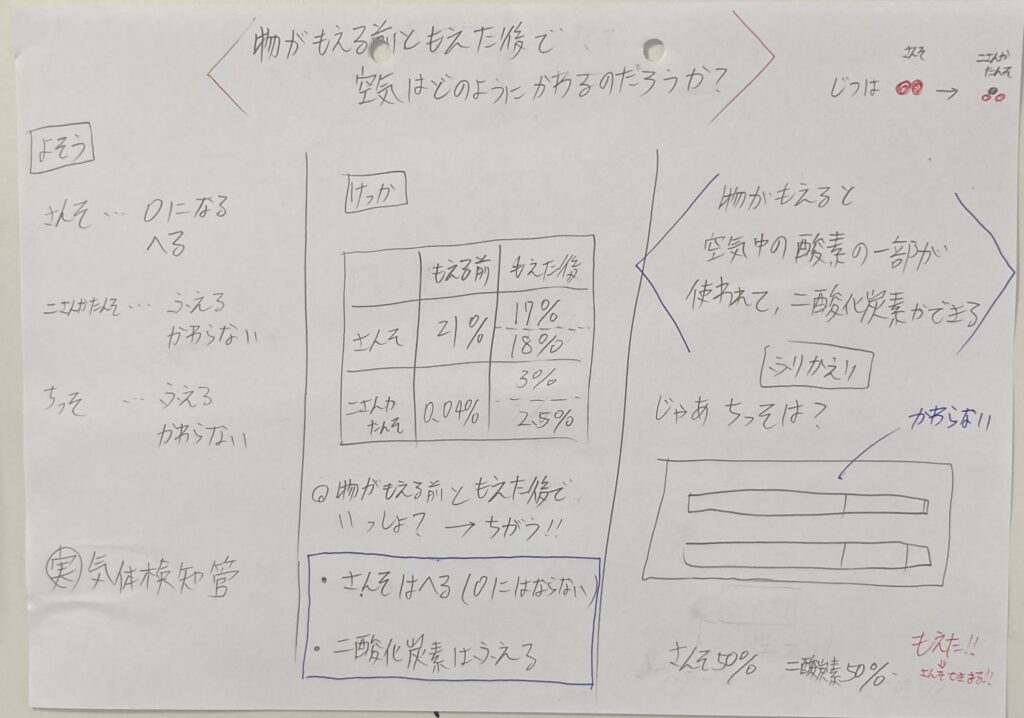 物がもえる前ともえた後で
空気はどのようにかわるのだろうか?
じつは
さんそ
→
二さんか
たんそ
よそう
さんそ… 0になる
へる
二さんかたんそ… ふえる
かわらない
ちっそ … ふえる
かわらない
実 気体検知管
けっか
もえる前 もえた後
さんそ 21% 17%
18%
二さんか
たんそ 0.04% 3%
2.5%
物がもえる前ともえた後で
いっしょ? →ちがう!!
・さんそはへる(0にはならない)
・二酸化炭素はふえる
物がもえると
空気中の酸素の一部が
使われて、二酸化炭素ができる
ふりかえり
じゃあ ちっそは?
かわらない
さんそ50% 二酸炭素50%
もえた!!
さんそできまる!!